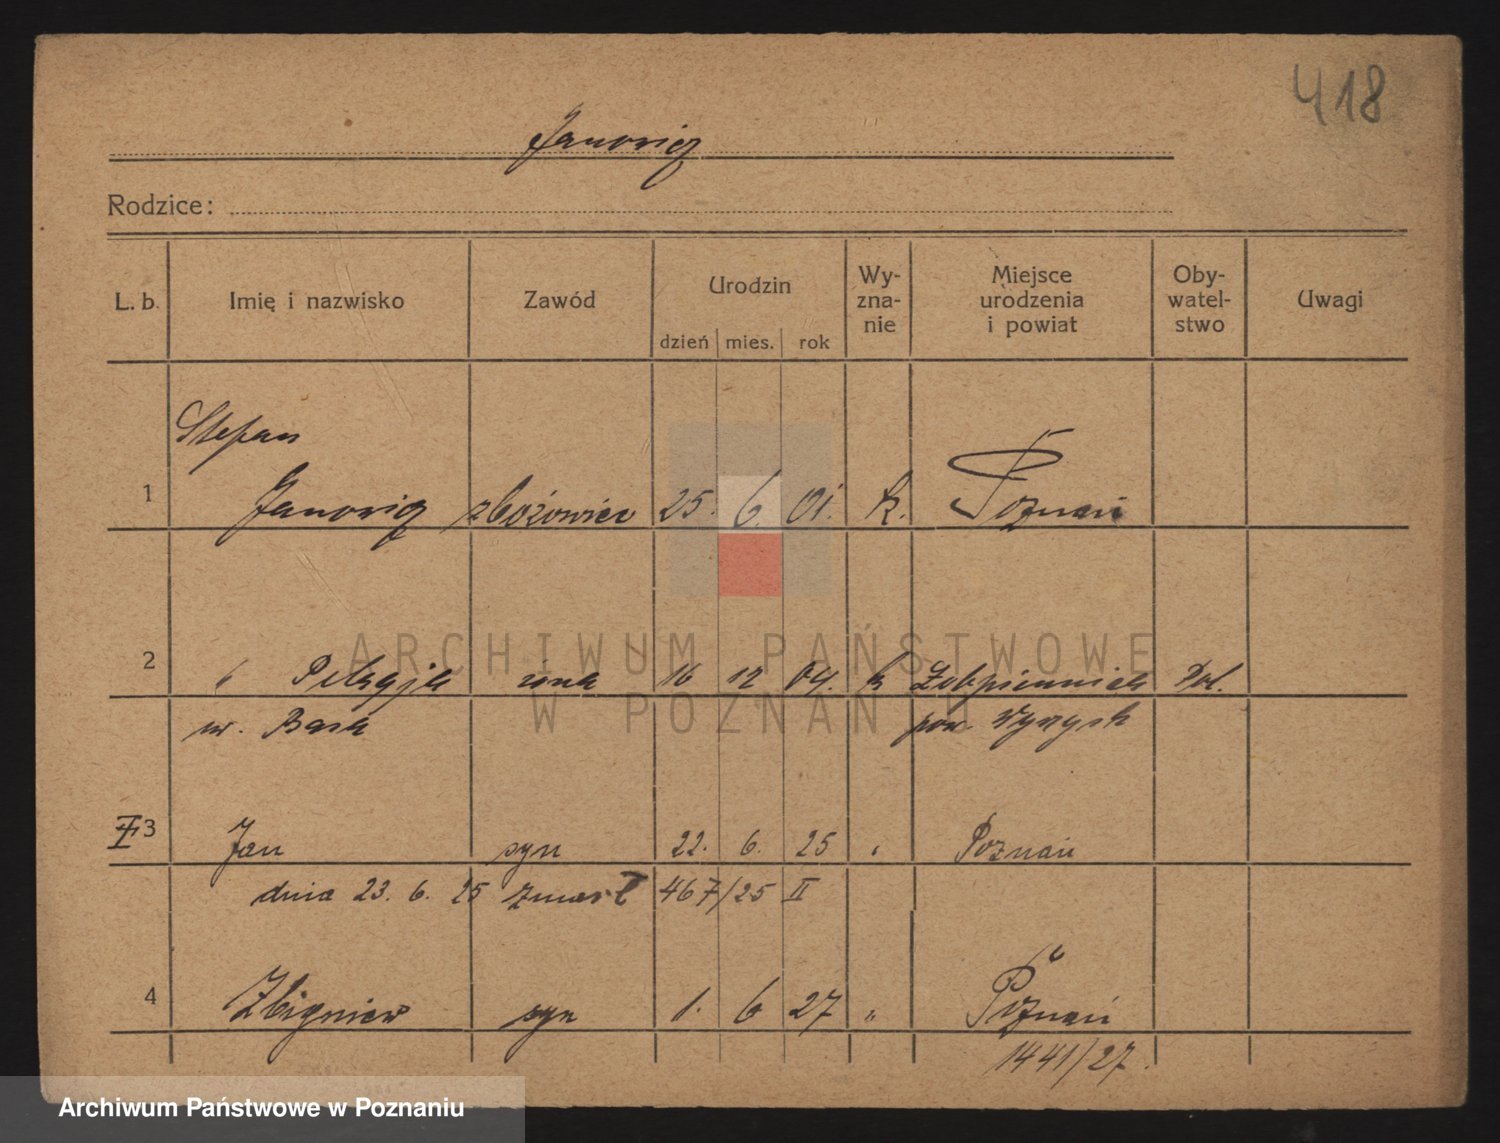 418
Janowicz
Rodzice:
L. b. Imię i nazwisko Zawód Urodzin dzień mies. rok Wy-zna-nie Miejsce urodzenia i powiat Oby-watel-stwo Uwagi
Stefan
1 Janowicz zbożowiec 25. 6. 01. k. Poznań
2 " Pelagja żona 16 12 04. k Pol.
ur. Bąk pow. Wyrzysk
3 Jan syn 22. 6. 25 " Poznań
dnia 23. 6. 25 zmarł 467/25 II
4 Zbigniew syn 1. 6 27 " Poznań
1441/27.
ARCHIWUM PAŃSTWOWE
W POZNANIU
Archiwum Państwowe w Poznaniu